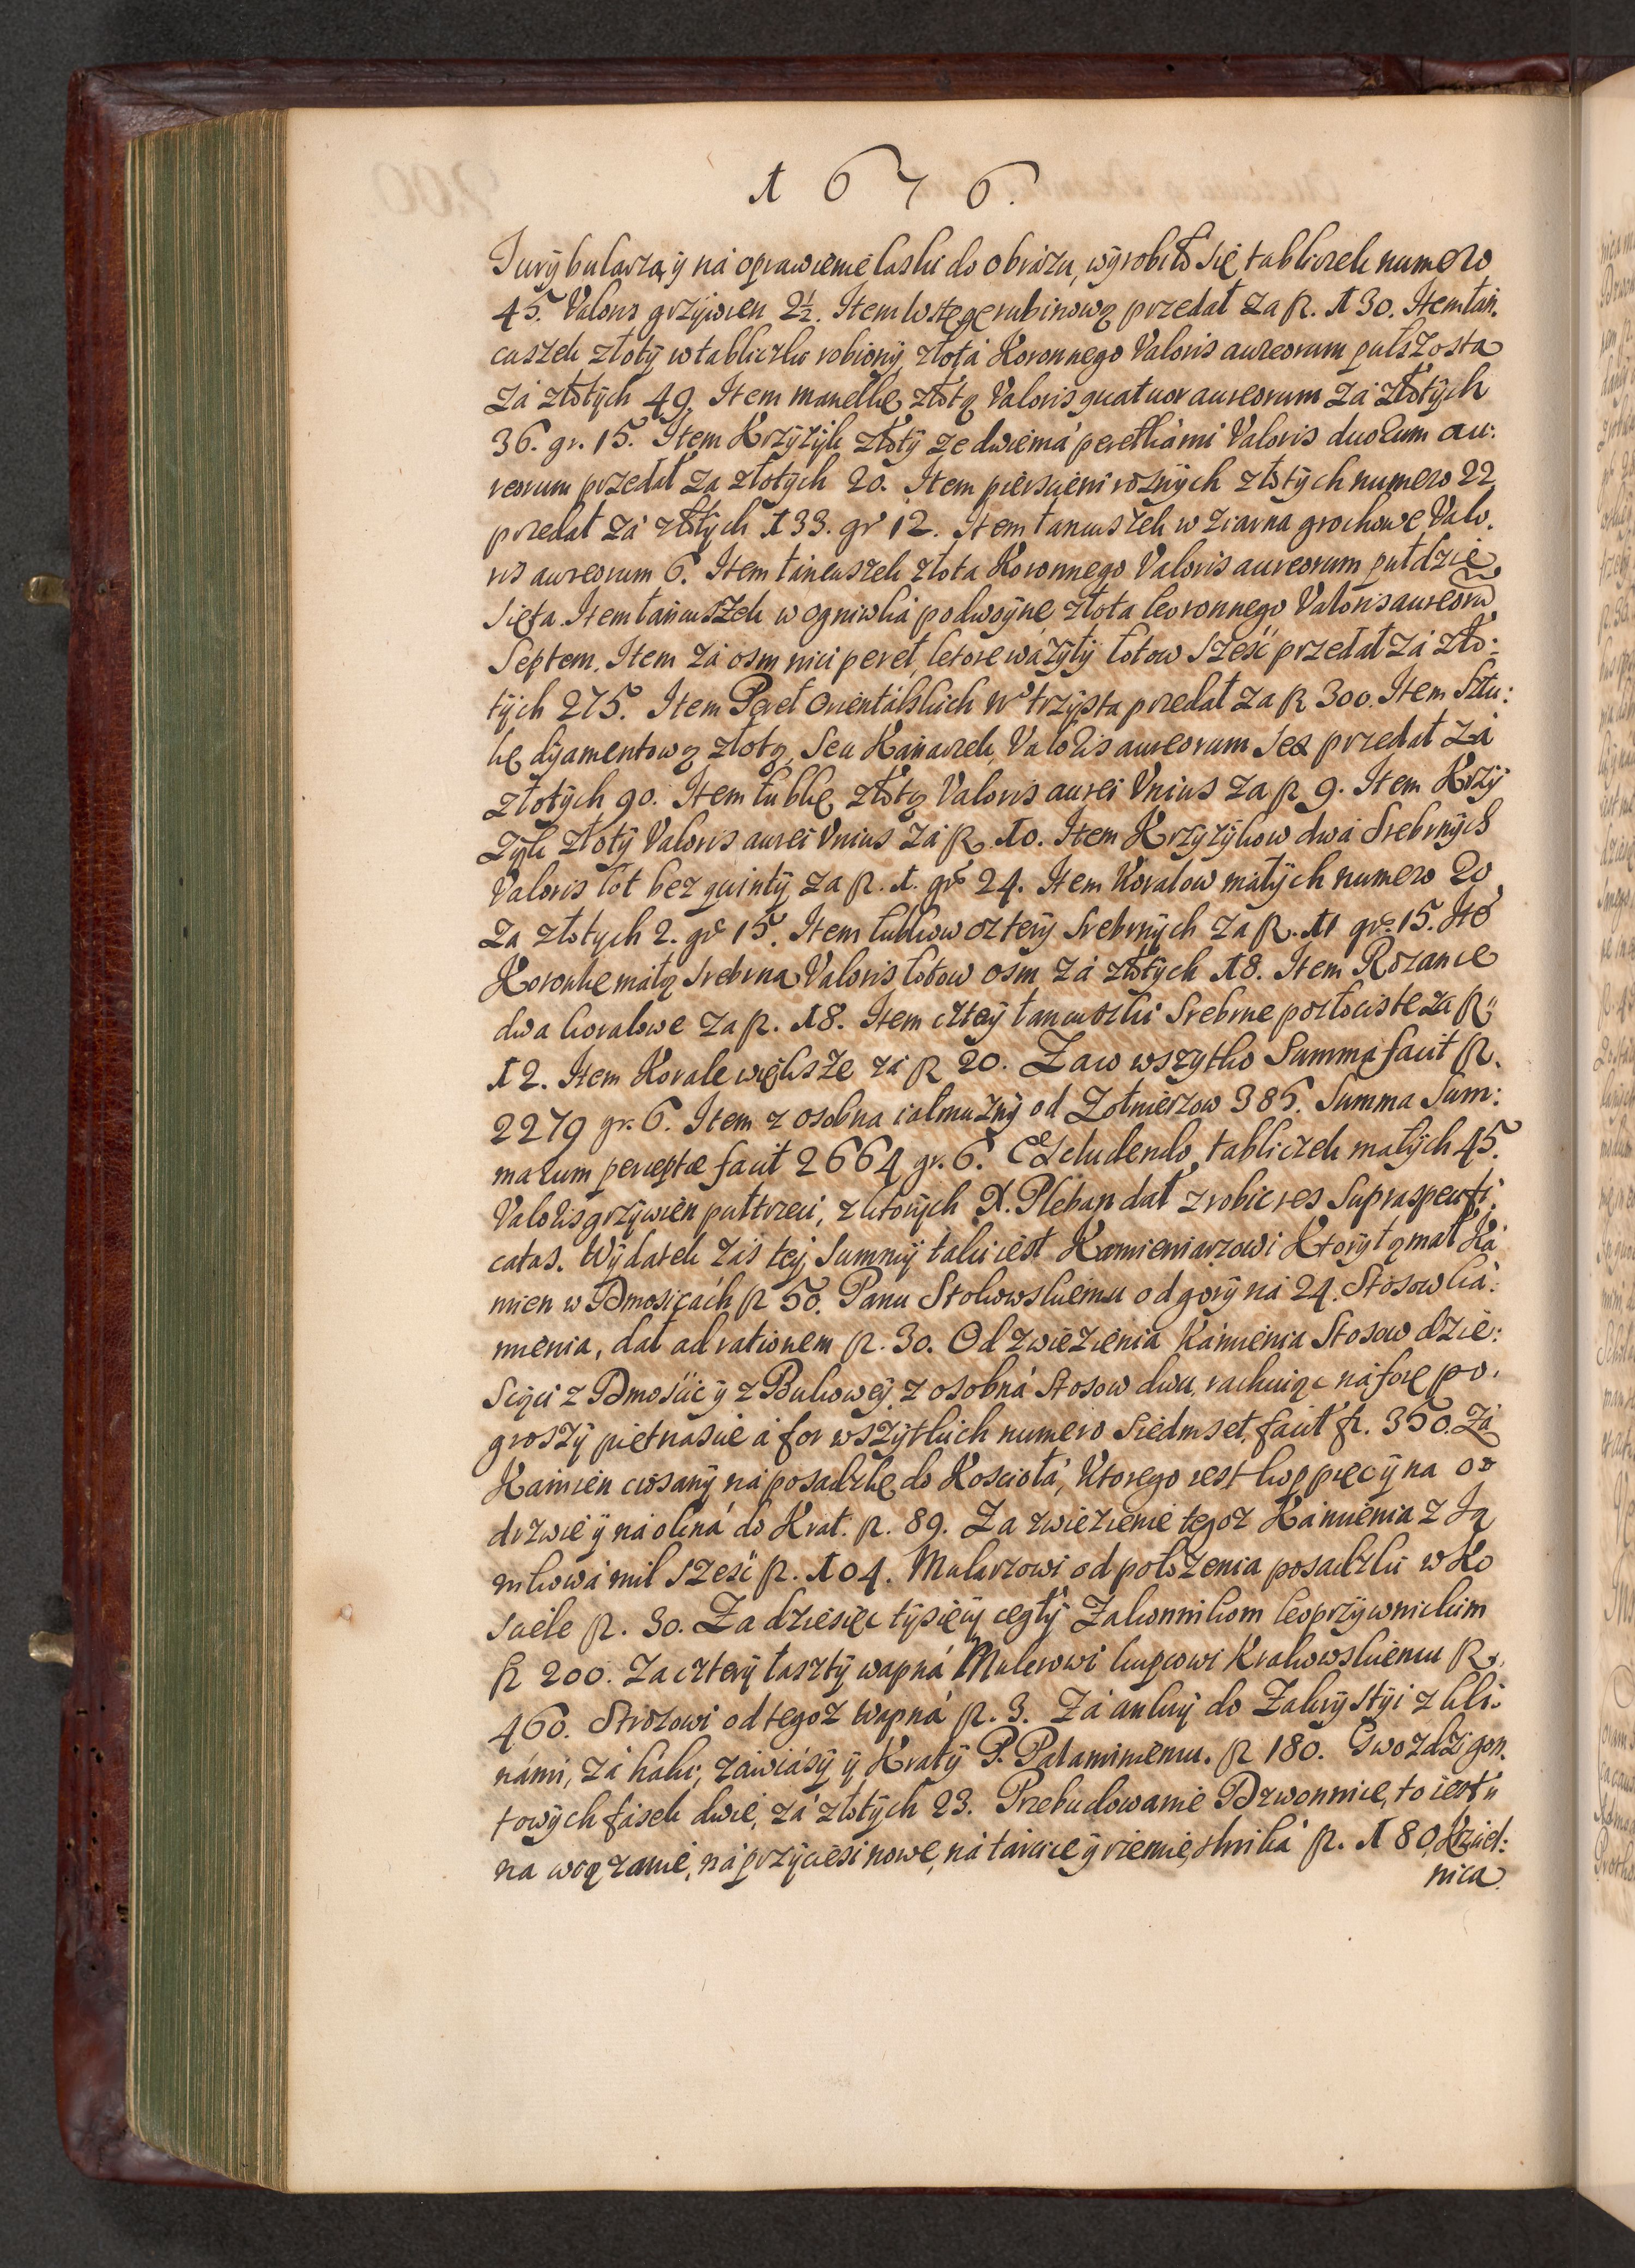 1676.
Turybularza, y ná oprawienie laski do obrázu, wyrobiło się tabliczek numero
45. Valoris grzywien 2½. Item wstęgę rubinową przedał za fl. 130. Item łań.
cuszek złoty w tabliczki robiony złotá Koronnego Valoris aureorum pułszosta
zá złotych 49. Item manellę złotą Valoris quatuor aureorum zá złotych
36. gr. 15. Item Krzyżyk złoty ze dwiemá perełkámi Valoris duorum au:
reorum przedał za złotych 20. Item pierscieni rożnych złotych numero 22
przedał zá złotych 133. gr 12. Item łancuszek w ziarna grochowe Valo.
ris aureorum 6. Item łáncuszek złota Koronnego Valoris aureorum pułdzie
sięta. Item łáncuszek w ogniwká podwoyne złota koronnego Valoris aureorũ
Septem. Item zá osm nici pereł, ktore wáżyły łotow sześć przedał zá zło:
tych 275. Item Pereł Orientálskich nr trzysta przedał za fl 300. Item Sztu:
kę dyamentową złotą, seu Kanaczek, Valoris aureorum sex przedał zá
złotych 90. Item łubkę złotą Valoris aurei Vnius za fl 9. Item Krzy
żyk złoty Valoris aurei Vnius zá fl. 10. Item Krzyżykow dwá Srebrnych
Valoris łot bez quinty za fl. 1. gr 24. Item Koralow máłych numero 20
Za złotych 2. gr 15. Item łubkow cztery Srebrnych za fl. 11 gr. 15. Itẽ
Koronkę máłą Srebrną Valoris łotow osm zá złotych 18. Item Rożance
dwa koralowe za fl. 18. Item cztery łancuszki Srebrne pozłociste za fl
12. Item Korale większe zá fl 20. Zaco wszytko Summa facit fl.
2279 gr. 6. Item z osobna iałmużny od Żołnierzow 385. Summa Sum:
marum perceptæ facit 2664 gr. 6. Excludendo, tabliczek małych 45.
Valoris grzywien pułtrzeci, z ktorych X. Pleban dał zrobić res Supraspecifi:
catas. Wydatek záś tej summy taki iest Kamieniarzowi Ktory łąmał Ká
mien w Dmosicách fl 50. Panu Stokowskiemu od gory ná 24. Stosow ká:
mienia, dał ad rationem fl. 30. Od zwieźienia Kámienia Stosow dzie:
siąci z Dmośic y z Bukowey, z osobná Stosow dwu, rachuiąc ná forę po.
groszy piętnascie á for wszytkich numero Siedmset, facit fl. 350. Zá
Kamien ciosany ná posadzkę do Kosciołá, Ktorego iest kop pięć y na od
drzwi y ná okná do Krat. fl. 89. Za zwiezienie tegoż Kámienia z Ią
nikowá mil sześć fl. 104. Mularzowi od położenia posadzki w Ko
sciele fl. 30. Za dziesięc tysięcy cegły Zakonnikom koprzywnickim
fl 200. Za cztery łaszty wapná Mulerowi kupcowi Krakowskiemu fl.
460. Strożowi od tegoż wapná fl. 3. Zá ankry do Zakrystyi z kli:
námi, zá háki, záwiásy y Kraty P. Pataminiemu. fl 180. Gwoźdźi gon.
towych fásek dwie, zá złotych 23. Przebudowanie Dzwonnice, to iest
na wiązanie, ná przyciesi nowe, ná tárcice y rżenie, drniká fl. 180, Kziel:
nica